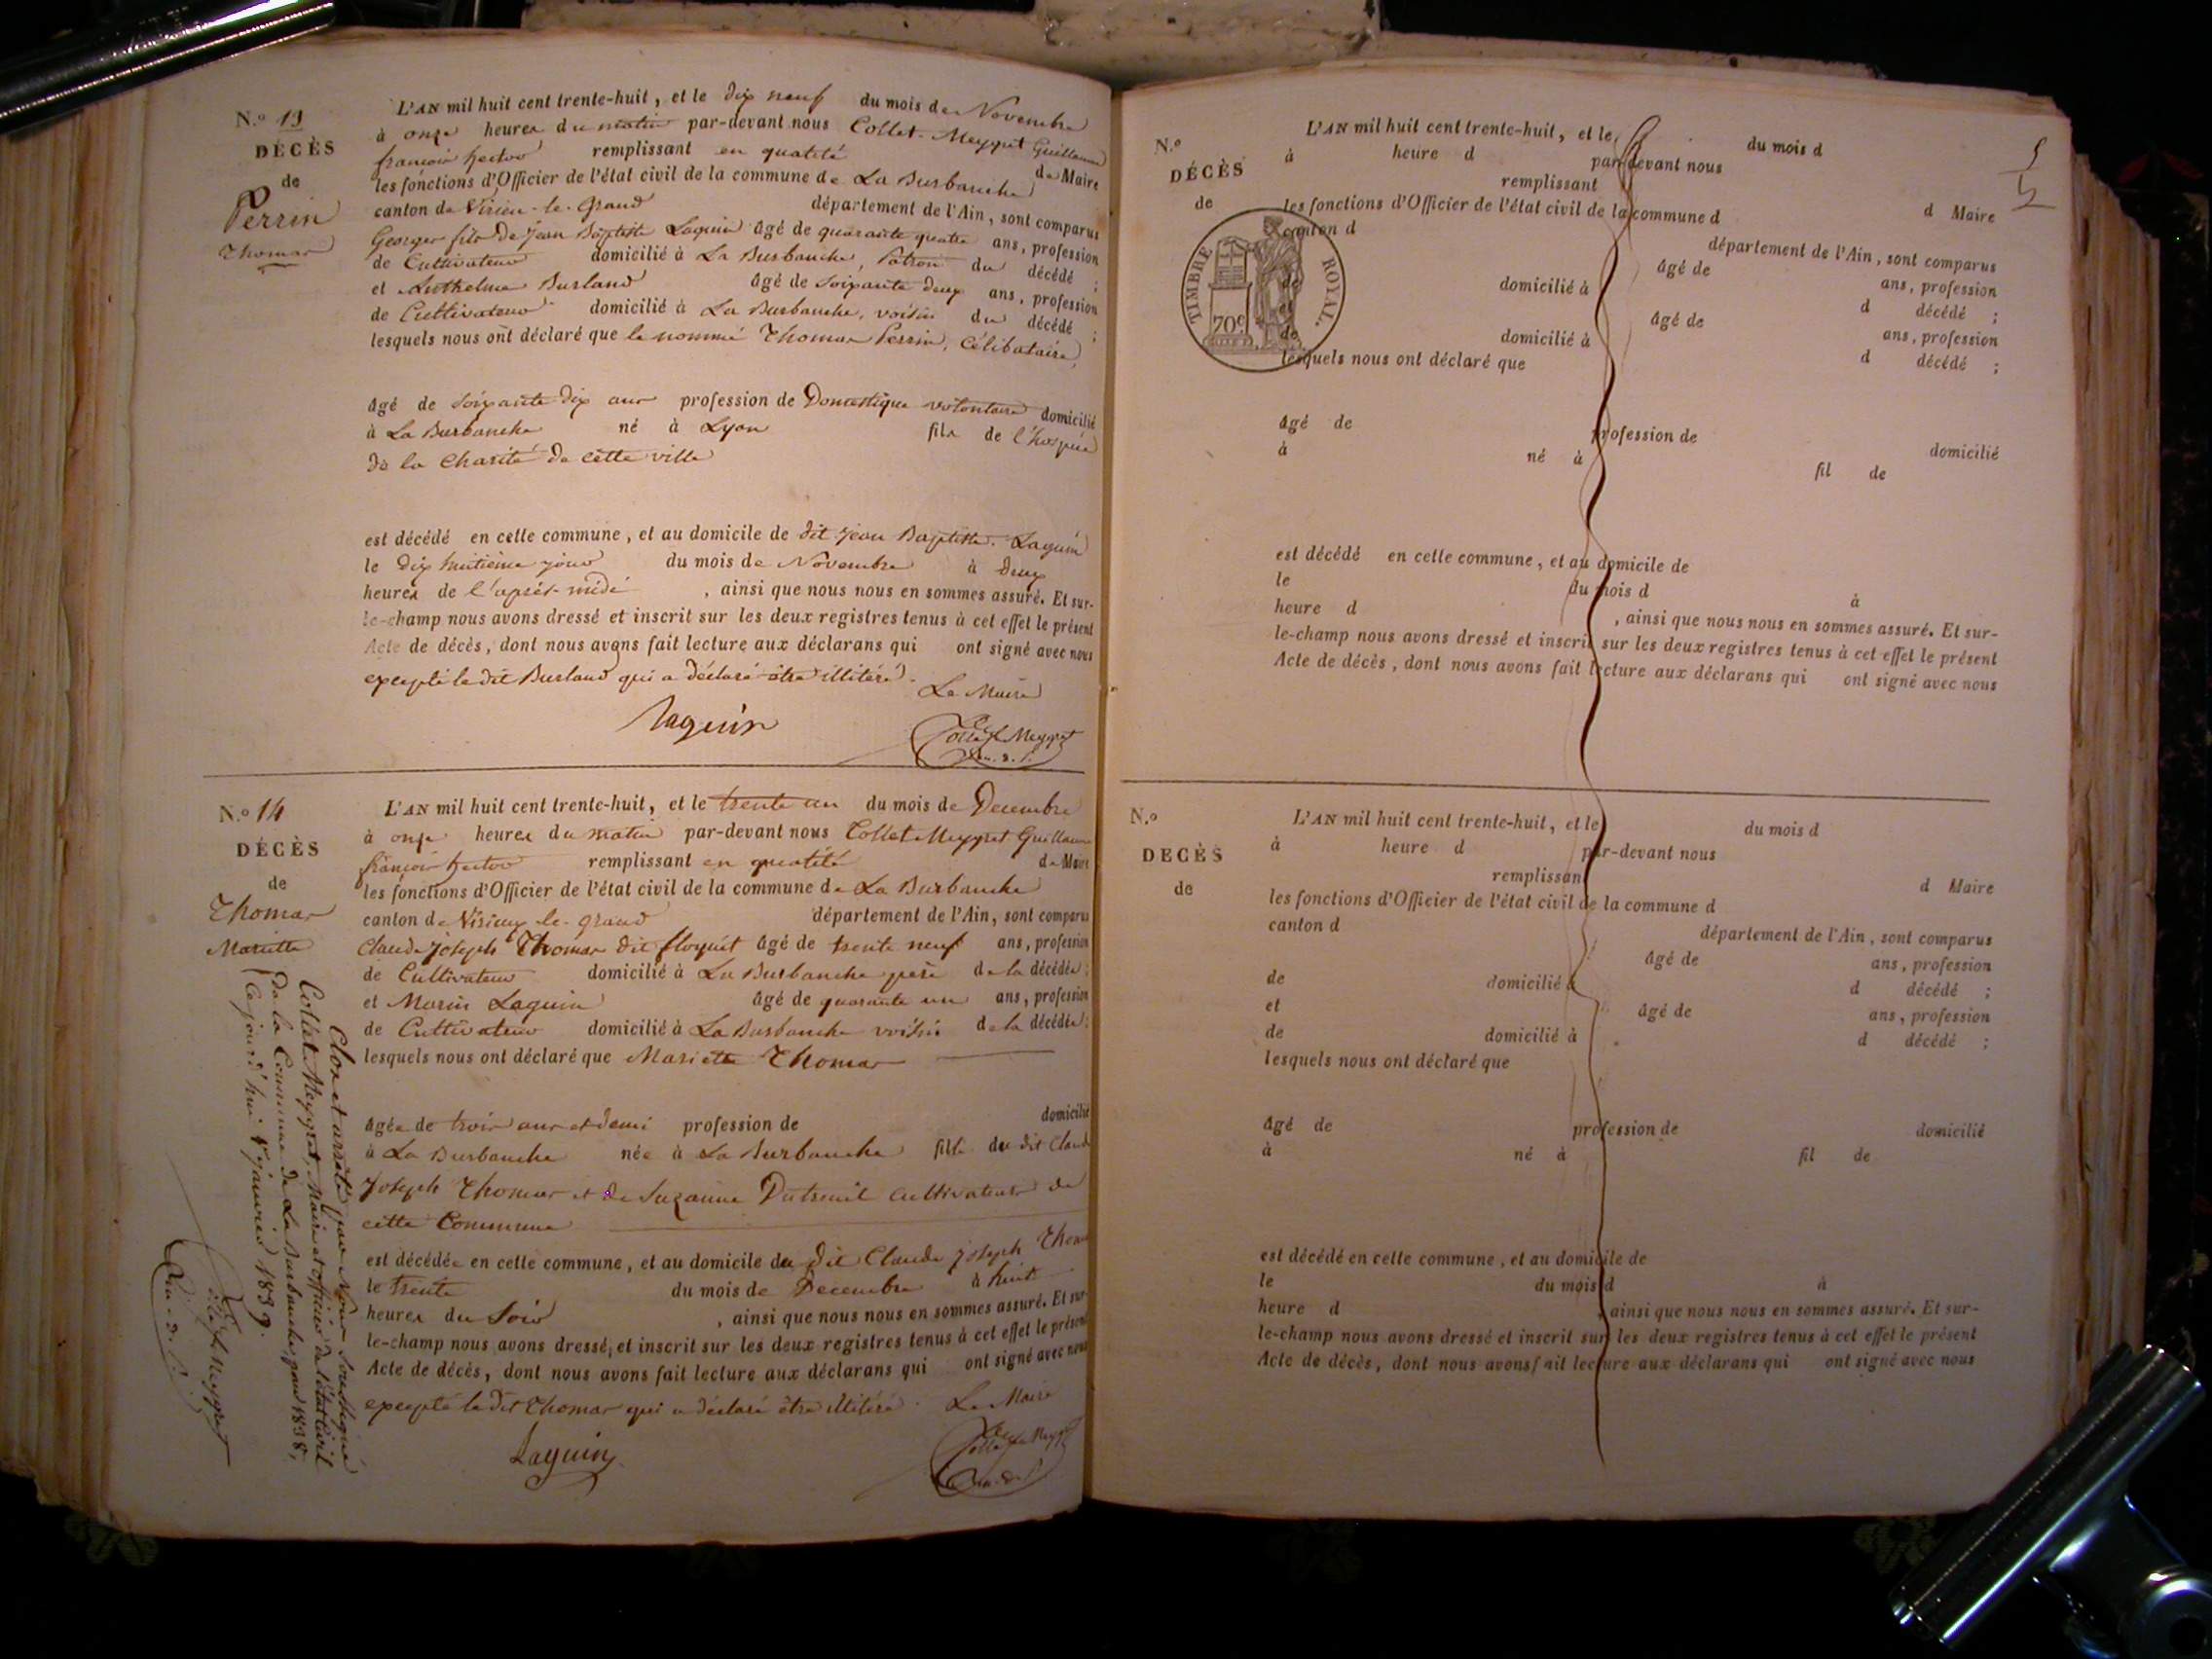 N.º 13
DÉCÈS
de
Perrin
Thomas
L'AN mil huit cent trente-huit, et le dix neuf du mois de Novembre
à onze heures du matin par-devant nous Collet-Meygret Guillaume
françois hector remplissant en qualité de Maire
les fonctions d'Officier de l'état civil de la commune de La Burbanche
canton de Virieu-le-Grand département de l'Ain, sont comparus
Georges fils de Jean Baptiste Laguin âgé de quarante quatre ans, profession
de Cultivateur domicilié à La Burbanche, Patron du décédé ;
et Anthelme Burland âgé de soixante deux ans, profession
de Cultivateur domicilié à La Burbanche, voisin du décédé ;
lesquels nous ont déclaré que le nommé Thomas Perrin, Célibataire,
âgé de soixante dix ans profession de Domestique volontaire domicilié
à La Burbanche né à Lyon fils de l'hospice
de la Charité de cette ville
est décédé en celle commune, et au domicile de dit Jean Baptiste Laguin
le dix huitième jour du mois de Novembre à deux
heures de l'après-midi , ainsi que nous nous en sommes assuré. Et sur-
le-champ nous avons dressé et inscrit sur les deux registres tenus à cet effet le présent
Acte de décès, dont nous avons fait lecture aux déclarans qui ont signé avec nous
excepté le dit Burland qui a déclaré être illitéré.
Le Maire
Laguin
Collet Meygret
N.º 14
DÉCÈS
de
Thomas
Mariette
L'AN mil huit cent trente-huit, et le trente un du mois de Decembre
à onze heures du matin par-devant nous Collet-Meygret Guillaume
françois hector remplissant en qualité de Maire
les fonctions d'Officier de l'état civil de la commune de La Burbanche
canton de Virieux-le-grand département de l'Ain, sont comparus
Claude Joseph Thomas dit floquet âgé de trente neuf ans, profession
de Cultivateur domicilié à La Burbanche père de la décédée ;
et Marin Laguin âgé de quarante un ans, profession
de Cultivateur domicilié à La Burbanche voisin de la décédée ;
lesquels nous ont déclaré que Mariette Thomas
âgée de trois ans et demi profession de domicilié
à La Burbanche née à La Burbanche fille du dit Claude
Joseph Thomas et de Suzanne Dutreuil cultivateurs de
cette Commune
est décédée en celle commune, et au domicile du dit Claude Joseph Thomas
le trente du mois de Decembre à huit
heures du Soir , ainsi que nous nous en sommes assuré. Et sur-
le-champ nous avons dressé, et inscrit sur les deux registres tenus à cet effet le présent
Acte de décès, dont nous avons fait lecture aux déclarans qui ont signé avec nous
excepté le dit Thomas qui a déclaré être illitéré. Le Maire
Laguin
Collet Meygret
Clos et arrêté par Nous soussigné
Collet-Meygret, Maire et officier de l'état civil
de la Commune de La Burbanche, pour 1838,
Ce jourd'hui 1er janvier 1839.
Collet Meygret
N.º
DÉCÈS
de
L'AN mil huit cent trente-huit, et le du mois d
à heure d par-devant nous
remplissant d Maire
les fonctions d'Officier de l'état civil de la commune d
canton d département de l'Ain, sont comparus
âgé de ans, profession
de domicilié à d décédé ;
et âgé de ans, profession
de domicilié à d décédé ;
lesquels nous ont déclaré que
TIMBRE ROYAL.
70c
âgé de profession de domicilié
à né à fil de
est décédé en celle commune, et au domicile de
le du mois d à
heure d , ainsi que nous nous en sommes assuré. Et sur-
le-champ nous avons dressé et inscrit sur les deux registres tenus à cet effet le présent
Acte de décès, dont nous avons fait lecture aux déclarans qui ont signé avec nous
N.º
DÉCÈS
de
L'AN mil huit cent trente-huit, et le du mois d
à heure d par-devant nous
remplissant d Maire
les fonctions d'Officier de l'état civil de la commune d
canton d département de l'Ain, sont comparus
âgé de ans, profession
de domicilié à d décédé ;
et âgé de ans, profession
de domicilié à d décédé ;
lesquels nous ont déclaré que
âgé de profession de domicilié
à né à fil de
est décédé en celle commune, et au domicile de
le du mois d à
heure d , ainsi que nous nous en sommes assuré. Et sur-
le-champ nous avons dressé et inscrit sur les deux registres tenus à cet effet le présent
Acte de décès, dont nous avons fait lecture aux déclarans qui ont signé avec nous